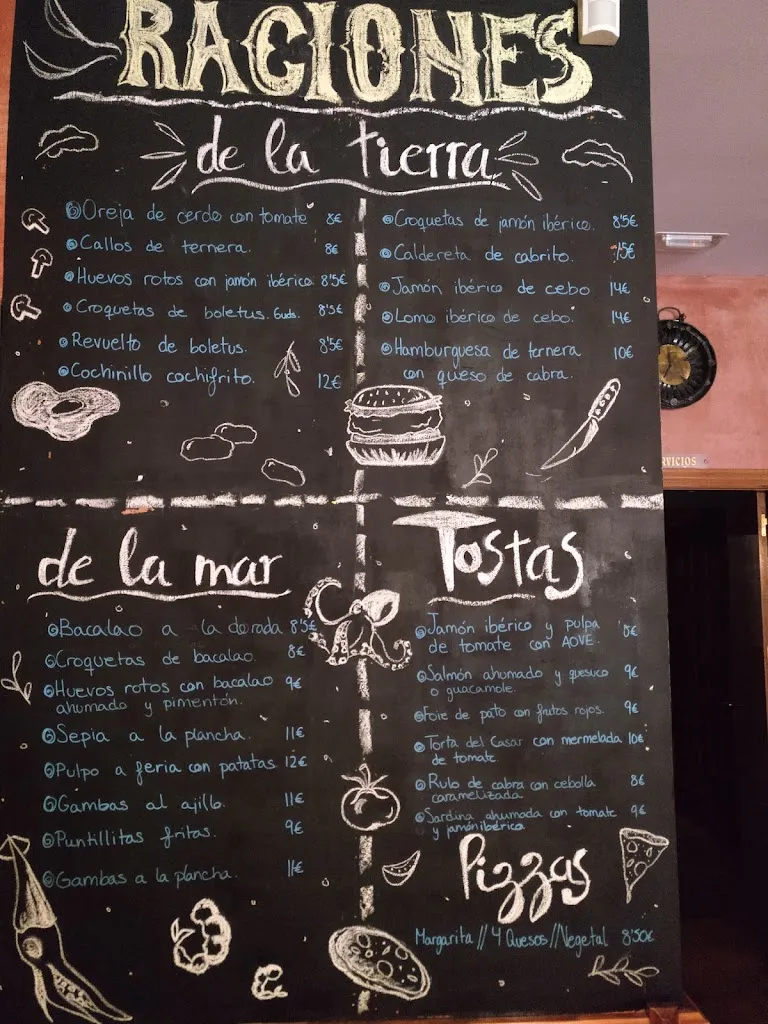 RACIONES
de la tierra
Oreja de cerdo con tomate 8€
Callos de ternera. 8€
Huevos rotos con jamón ibérico 8'5€
Croquetas de boletus. 6uds. 8'5€
Revuelto de boletus. 8'5€
Cochinillo cochifrito. 12€
Croquetas de jamón ibérico. 8'5€
Caldereta de cabrito.
Jamón ibérico de cebo 14€
Lomo ibérico de cebo. 14€
Hamburguesa de ternera 10€
con queso de cabra.
de la mar
Bacalao a la dorada 8'5€
Croquetas de bacalao. 8€
Huevos rotos con bacalao 9€
ahumado y pimentón.
Sepia a la plancha. 11€
Pulpo a feria con patatas 12€
Gambas al ajillo. 11€
Puntillitas fritas. 9€
Gambas a la plancha. 11€
Tostas
Jamón ibérico y pulpa 8€
de tomate con AOVE.
Salmón ahumado y quesico 9€
o guacamole.
Foie de pato con frutos rojos. 9€
Torta del Casar con mermelada 10€
de tomate.
Rulo de cabra con cebolla 8€
caramelizada
Sardina ahumada con tomate 9€
y jamón ibérico
Pizzas
Margarita // 4 Quesos // Vegetal 8'50€
RVICIOS